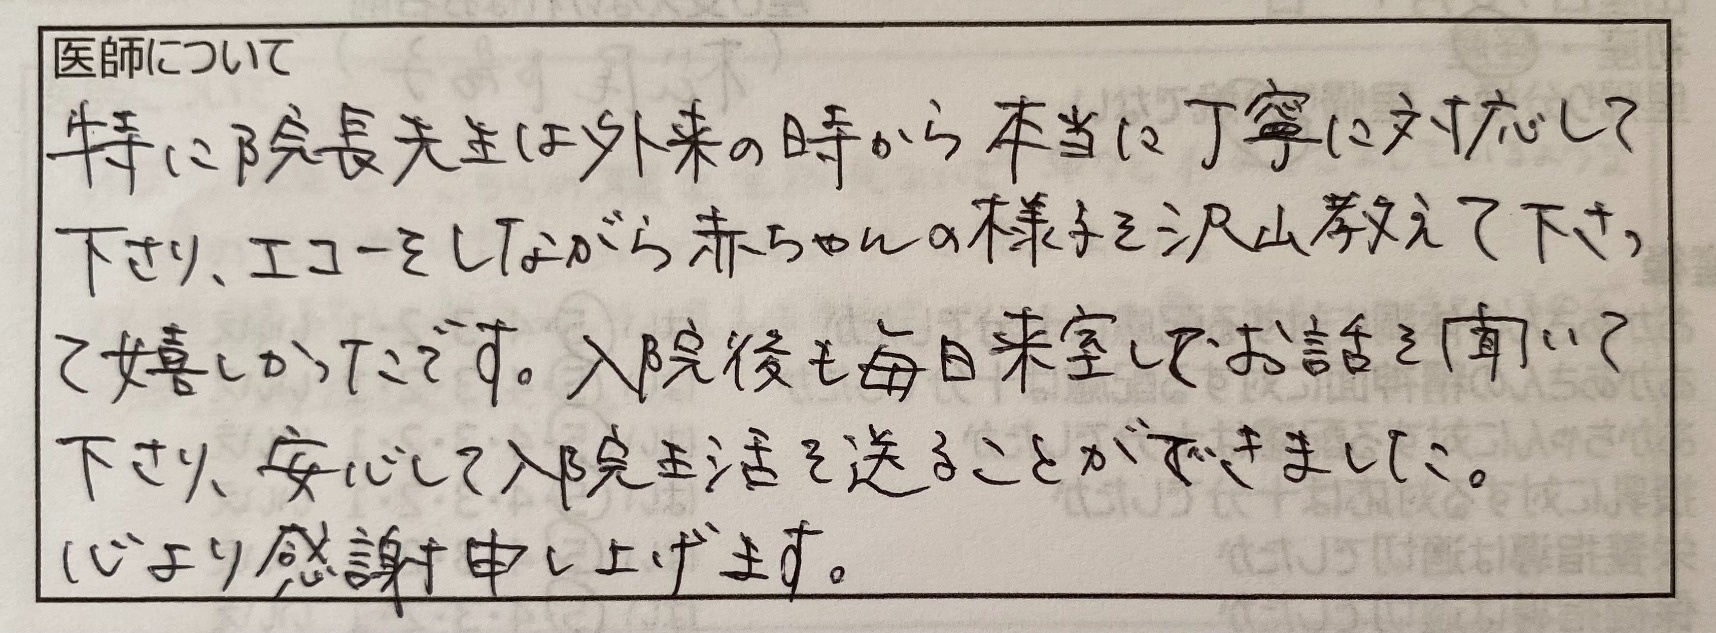 医師について
特に院長先生は外来の時から本当に丁寧に対応して
下さり、エコーをしながら赤ちゃんの様子を沢山教えて下さっ
て嬉しかったです。入院後も毎日来室してお話を聞いて
下さり、安心して入院生活を送ることができました。
心より感謝申し上げます。